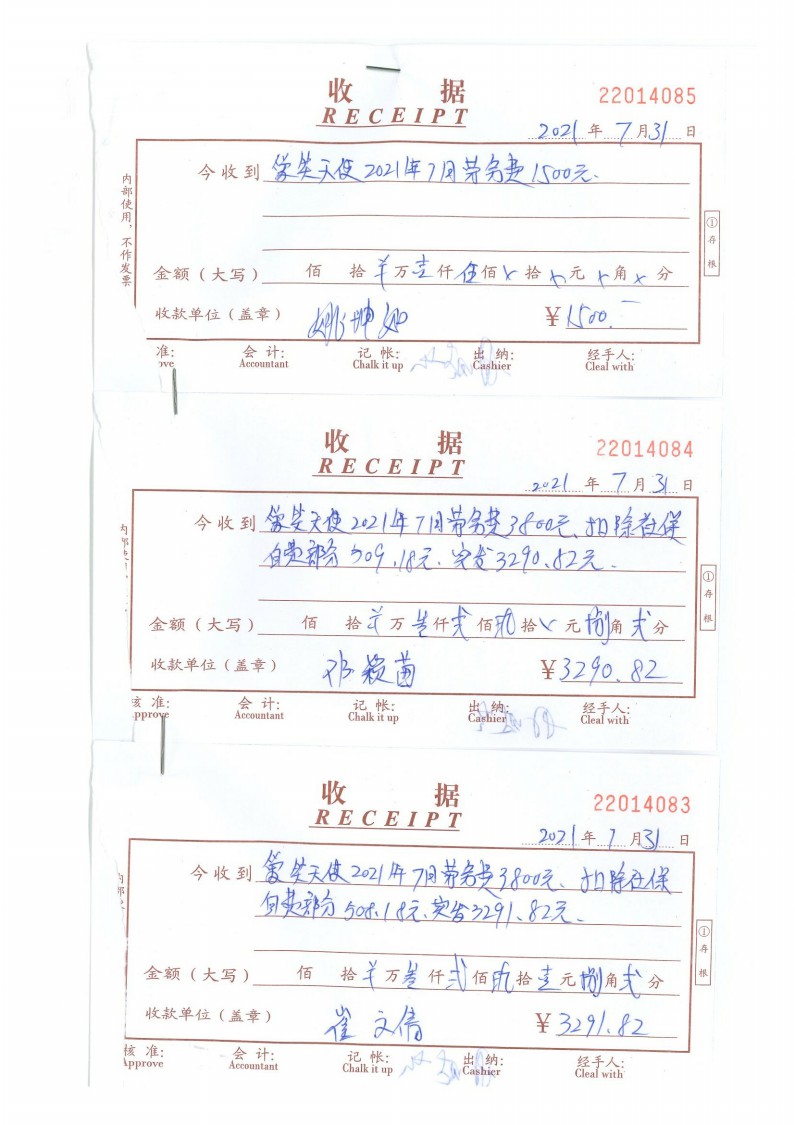 收 据
RECEIPT
22014085
2021年7月31日
今收到 微笑天使2021年7月劳务费1500元.
金额（大写） 佰 拾 ¥ 万 壹 仟 伍 佰 x 拾 x 元 x 角 x 分
收款单位（盖章） ¥ 1500.
内部使用，不作发票
①存根
准: 会 计: 记 帐: 出 纳: 经手人:
ove Accountant Chalk it up Cashier Cleal with
收 据
RECEIPT
22014084
2021年7月31日
今收到 微笑天使2021年7月劳务费3800元、扣除社保
自费部分509.18元.实发3290.82元.
金额（大写） 佰 拾 ¥ 万 叁 仟 贰 佰 玖 拾 x 元 捌 角 贰 分
收款单位（盖章） ¥ 3290.82
①存根
核 准: 会 计: 记 帐: 出 纳: 经手人:
pprove Accountant Chalk it up Cashier Cleal with
收 据
RECEIPT
22014083
2021年7月31日
今收到 微笑天使2021年7月劳务费3800元、扣除社保
自费部分508.18元.实发3291.82元.
金额（大写） 佰 拾 ¥ 万 叁 仟 贰 佰 玖 拾 壹 元 捌 角 贰 分
收款单位（盖章） 崔文倩 ¥ 3291.82
①存根
核 准: 会 计: 记 帐: 出 纳: 经手人:
Approve Accountant Chalk it up Cashier Cleal with